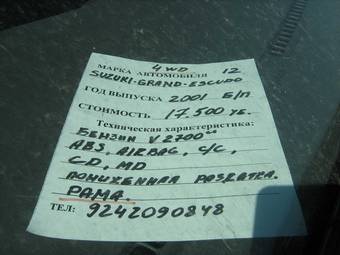 4WD 12
МАРКА АВТОМОБИЛЯ
SUZUKI-GRAND-ESCUDO
ГОД ВЫПУСКА 2001 Б/П
СТОИМОСТЬ 17.500 УЕ.
Техническая характеристика:
БЕНЗИН V 2700
ABS, AIRBAG, С/С,
CD, MD
ПОНИЖЕННАЯ РАЗДАТКА.
РАМА.
ТЕЛ: 9242090848